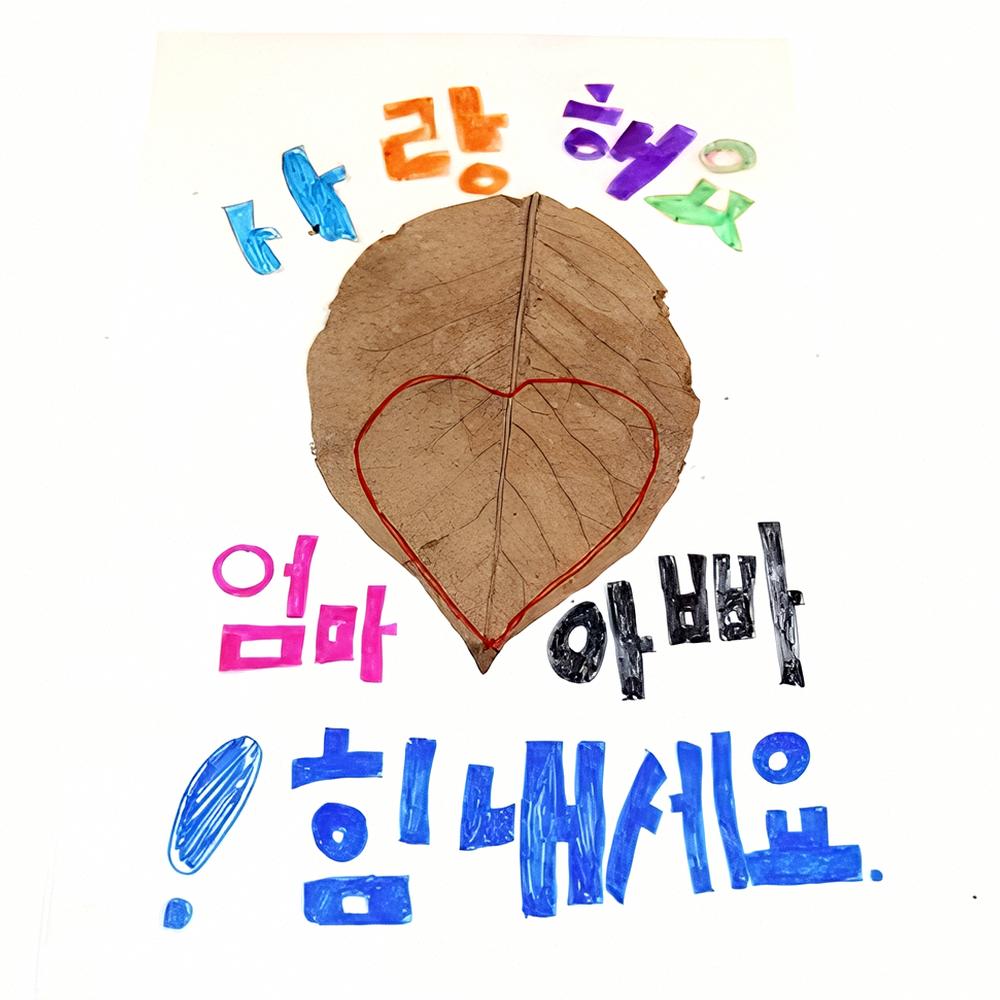 사랑해요
엄마 아빠
! 힘내세요.